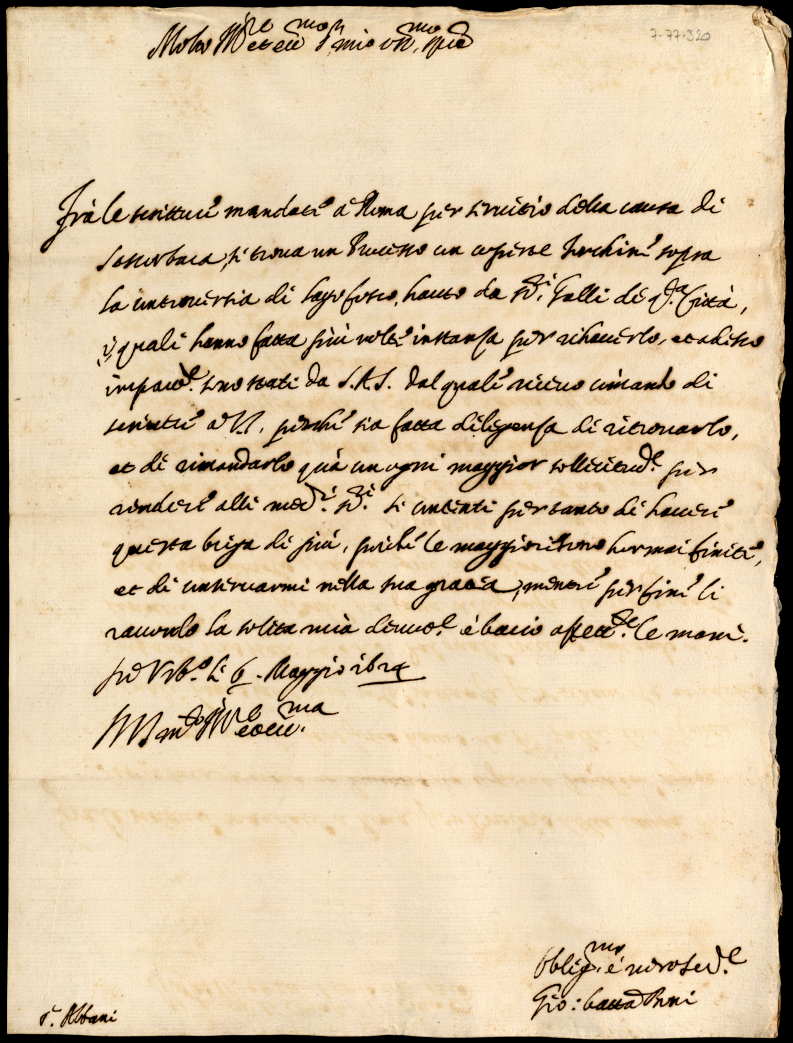 7-77-320
Molto Ill.re et ecc.mo S.r mio oss.mo
Frà le scritture mandate à Roma per servitio della causa di
si trova un Processo con coperte turchine sopra
la controversia di lagofosco, hauto da SS.ri Galli di q.ta Città,
i quali hanno fatta più volte instanza per rihaverlo, et adesso
sono stati da S.A.S. dal quale ricevo comando di
scrivere à V.S. perche sia fatta diligenza di ritrovarlo,
et di rimandarlo quà con ogni maggior sollicitud.e per
rendere alli med.i SS.ri Si contenti pertanto di havere
questa briga di più, poiche le maggiori sono hormai finite,
et di conservarmi nella sua gratia, mentre per fine li
ricordo la solita mia devot.e è bacio affett.te le mani.
Urb.o li 6. Maggio 1624
D V.S. m.to Ill.re et ecc.ma
Oblig.mo è vero Ser.e
Gio: Batta
S.r Albani